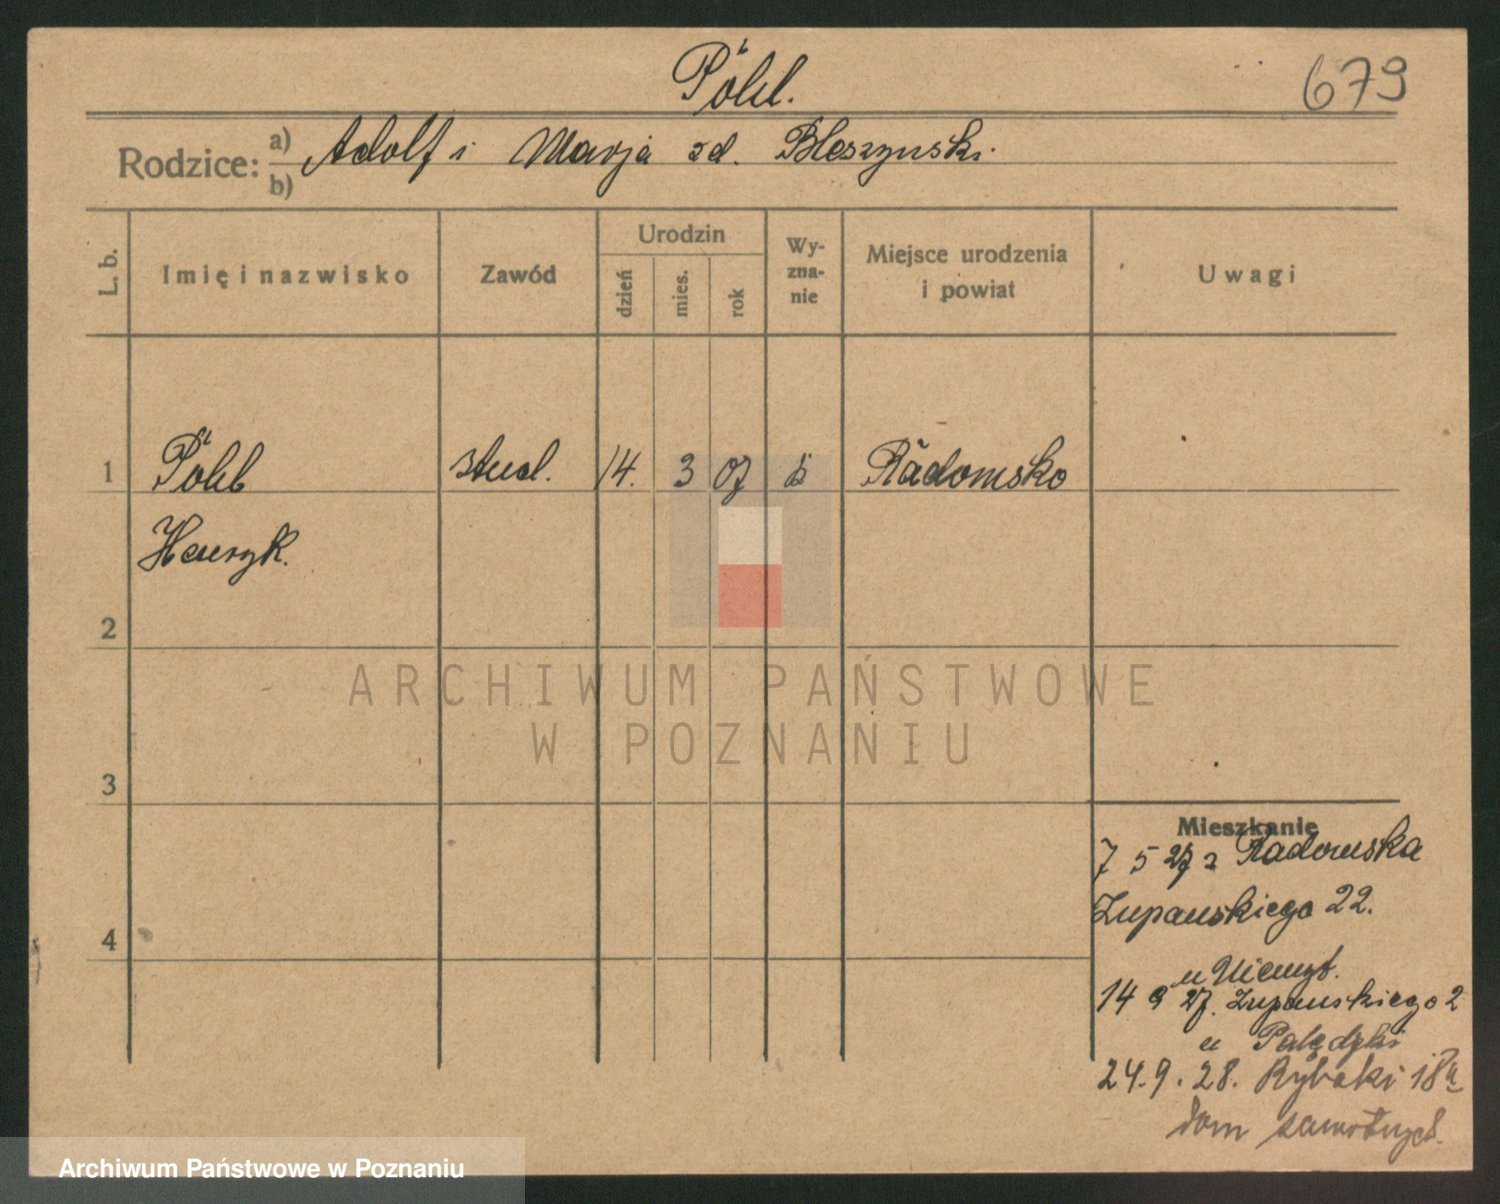 Pöhl.
679
Rodzice: a) Adolf i Marja zd. Bleszynski.
b)
L. b.
Imię i nazwisko
Zawód
Urodzin
dzień
mies.
rok
Wy-
zna-
nie
Miejsce urodzenia
i powiat
Uwagi
1 Pöhl stud. 14. 3 07 Radomsko
Henryk.
2
3
4
ARCHIWUM PAŃSTWOWE
W POZNANIU
Mieszkanie
7 5 27 z Radomska
Zupanskiego 22.
u
14 9 27. Zupanskiego 2
u
24.9.28. Rybaki 18a
dom samotnych.
Archiwum Państwowe w Poznaniu